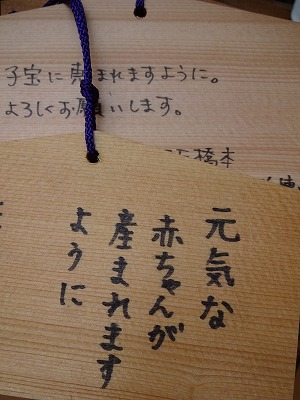 子宝に恵まれますように。
よろしくお願いします。
橋本
元気な
赤ちゃんが
産まれます
ように